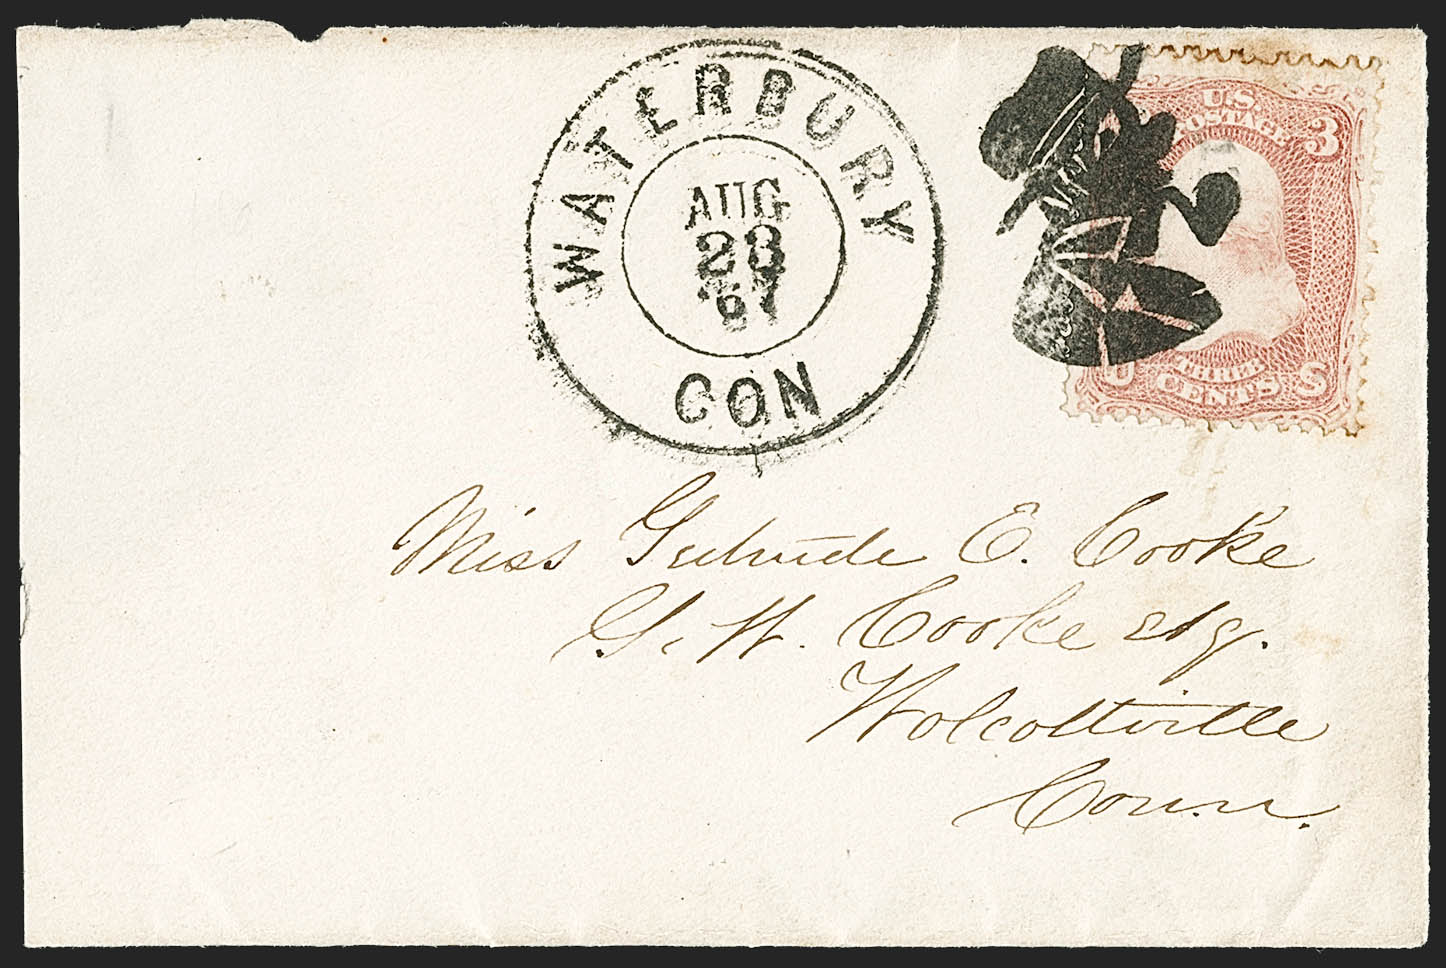 WATERBURY
AUG
28
67
CON
U.S.
POSTAGE
3
THREE
U CENTS S
Miss Gertrude E. Cooke
G. W. Cooke Esq.
Wolcottville
Conn.